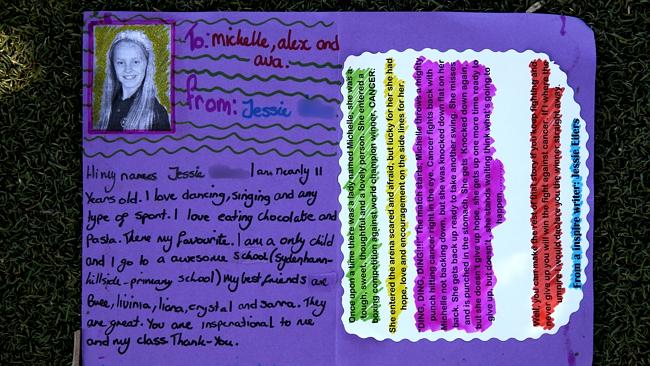 To: michelle, alex and
ava.
From: Jessie
Hi my names Jessie I am nearly 11
years old. I love dancing, singing and any
type of sport. I love eating chocolate and
Pasta. There my favourite. I am a only child
and I go to a awesome school (Sydenham-
hillside-primary school) my best friends are
Bree, livinia, liana, crystal and sanra. They
are great. You are inspirational to me
and my class Thank-You.
Once upon a time there was a lady named Michelle, she was a
tough, sweet, thoughtful and a lovely person. She entered a
boxing competition against world champion winner, CANCER.
She entered the arena scared and afraid, but lucky for her she had
hope, love and encouragement on the side lines for her.
DING, DING, DING!!! the match starts, Michelle throws a mighty
punch hitting cancer right in the eye. Cancer fights back with
Michelle not backing down, but she was knocked down flat on her
back. She gets back up ready to take another swing. She misses
and is punched in the stomach. She gets Knocked down again,
but she doesn't give up hope, she gets up one more time ready to
give up, but doesn't, she stands waiting thinking what's going to
happen
Well, you can make the rest of that story. If you keep fighting and
never give up you will win the fight against cancer, if I where the
umpire, I would declare you the winner straight away.
From a inspire writer: Jessie Eilers